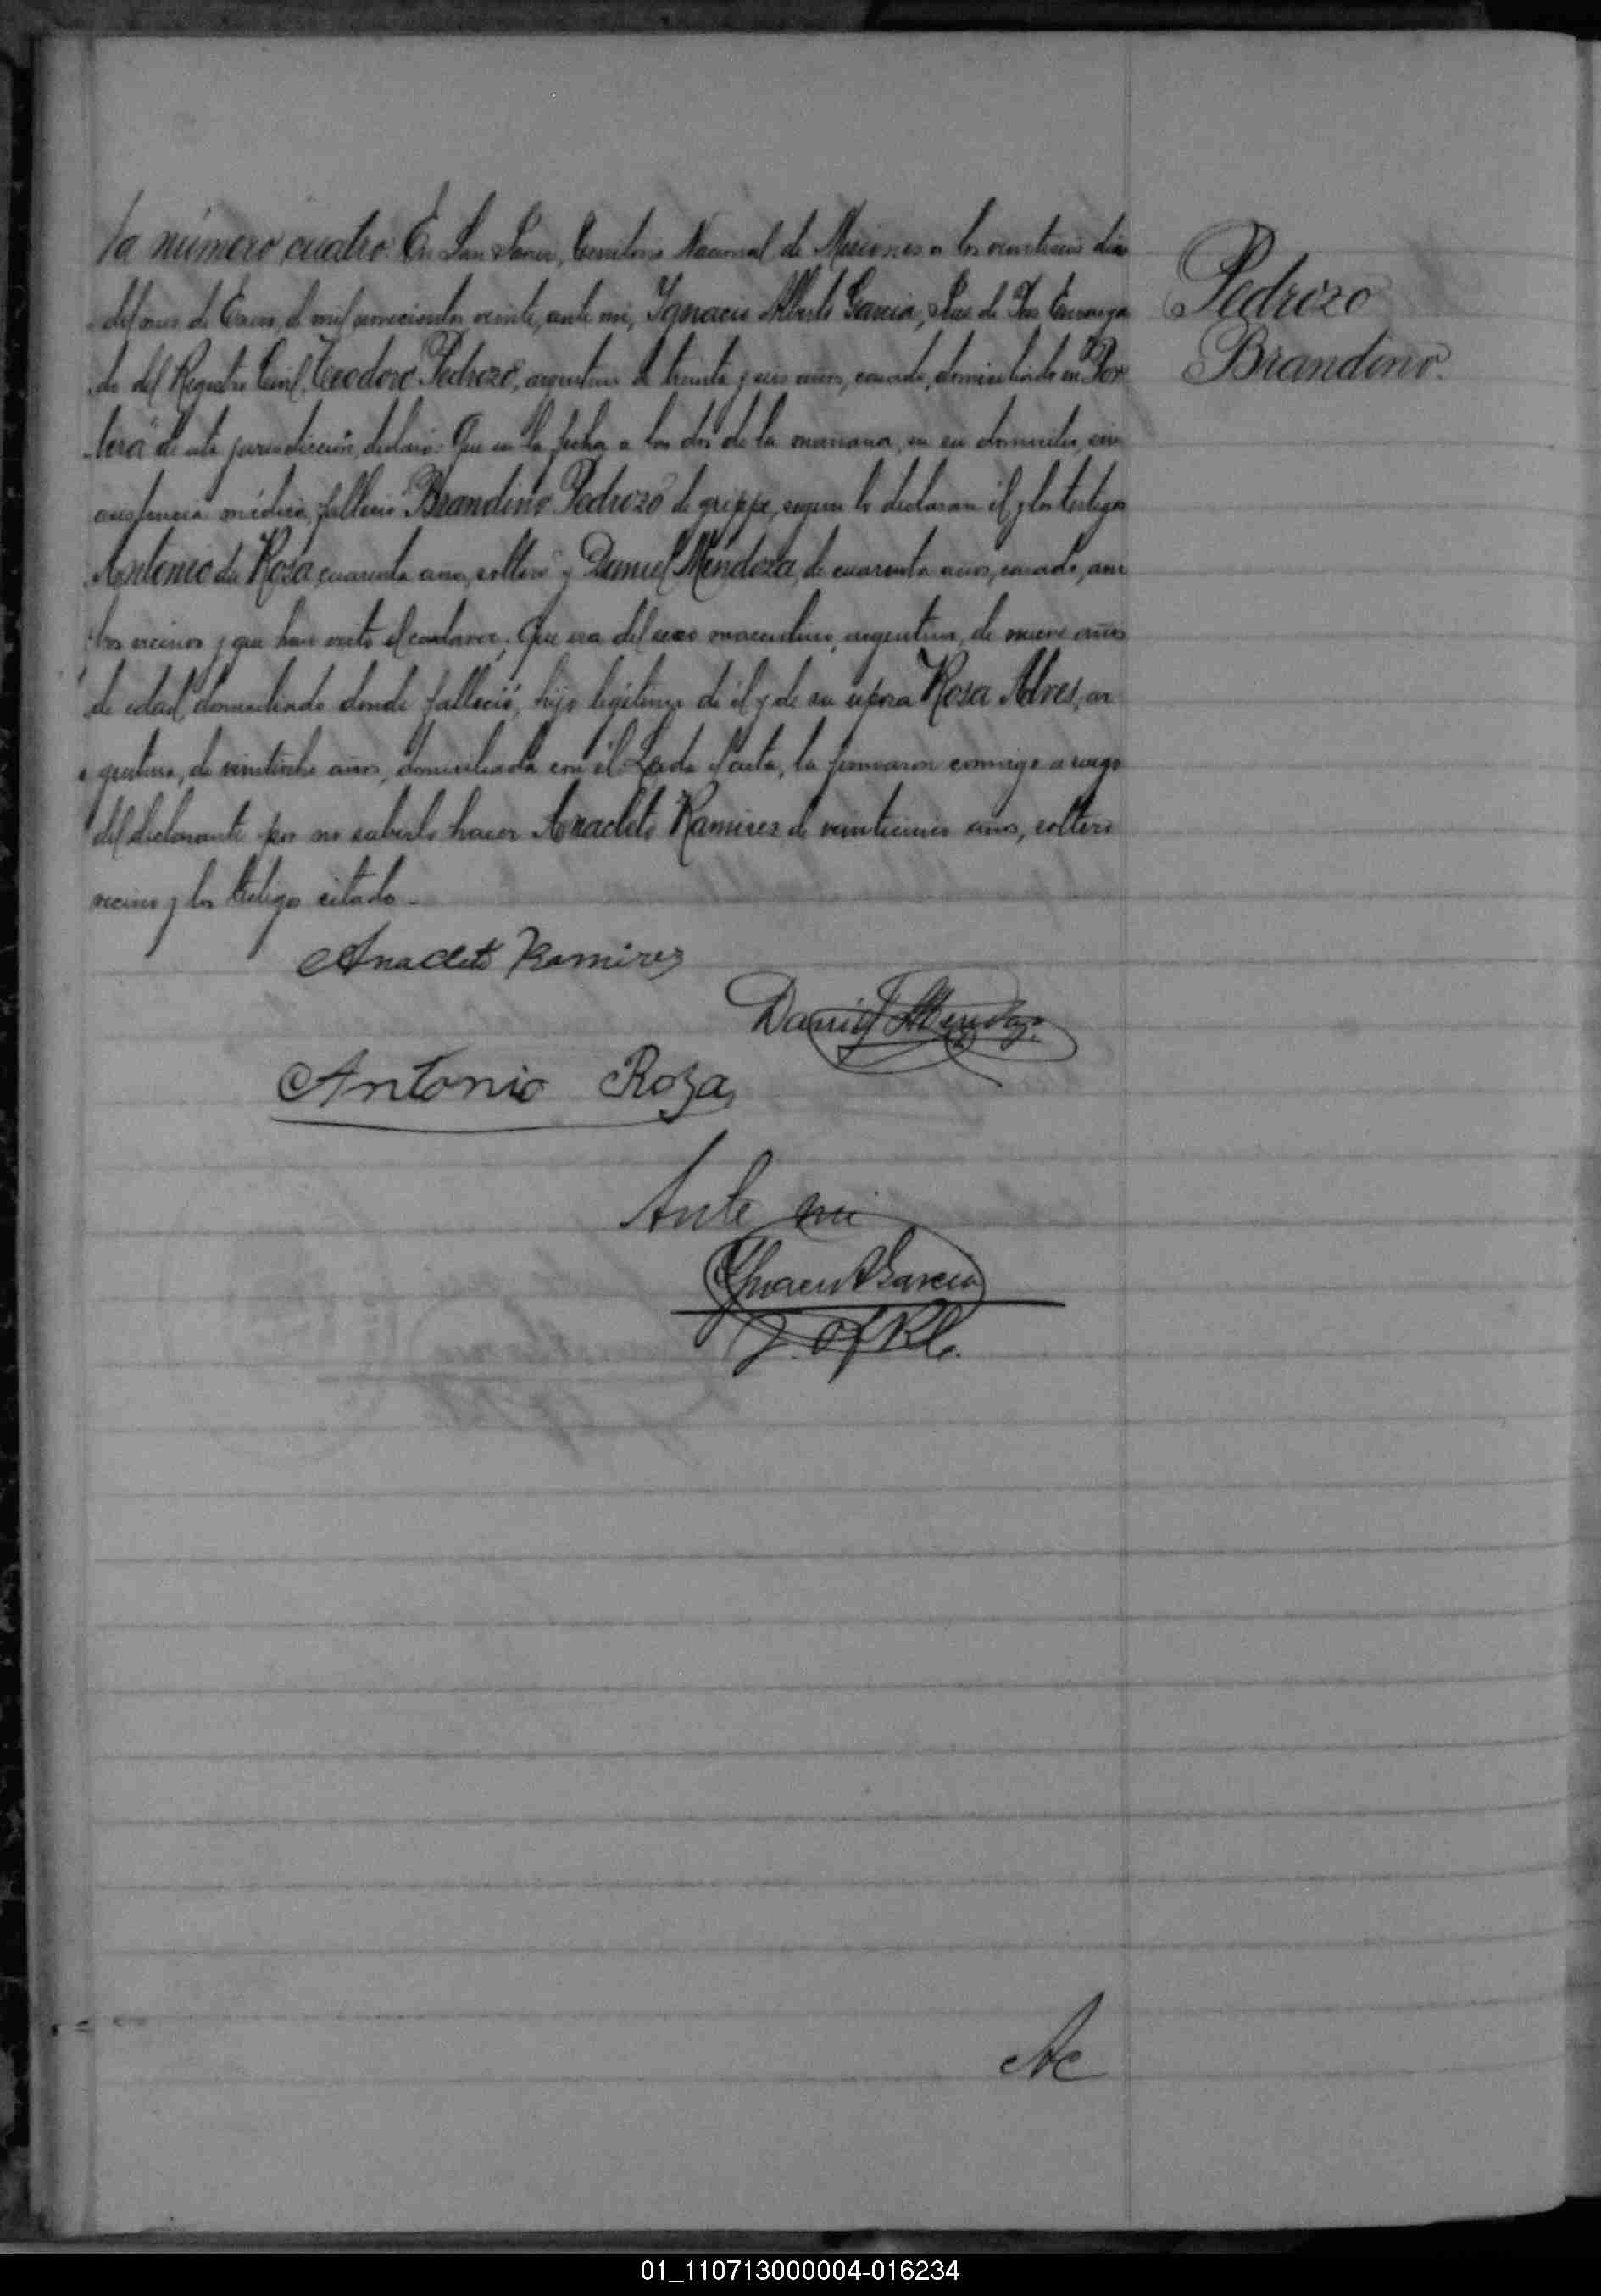 ta número cuatro: En San Javier, Territorio Nacional de Misiones a los veintiseis dias
del mes de Enero, de mil novecientos veinte, ante mi, Ignacio Alberto Garcia, Juez de Paz Encarga
do del Registro Civil, Teodoro Pedrozo, argentino de treinta y seis años, casado, domiciliado en "Por
tera" de esta jurisdicción, declaró: Que en la fecha a las dos de la mañana, en su domicilio, sin
asistencia médica, falleció Brandino Pedrozo de grippe, segun lo declaran él y los testigos
Antonio da Rosa, cuarenta años, soltero y Daniel Mendoza, de cuarenta años, casado, am
bos vecinos y que han visto el cadaver; Que era del sexo masculino, argentino, de nueve años
de edad, domiciliado donde falleció, hijo legitimo de él y de su esposa Rosa Alves, ar
gentina, de veintiocho años, domiciliada con él. Leida el acta, la firmaron conmigo a ruego
del declarante por no saberlo hacer Anacleto Ramirez de veinticinco años, soltero
vecino y los testigos citados.
Pedrozo
Brandino.
Anacleto Ramirez
Daniel Mendoza
Antonio Roza
Ante mi
Ignacio A Garcia
Ac
01_110713000004-016234